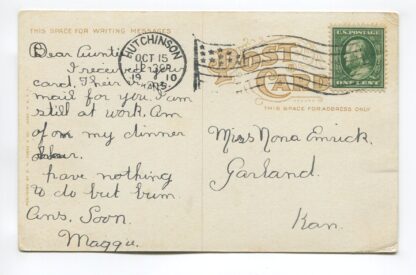 THIS SPACE FOR WRITING MESSAGES
Dear Auntie
I received your
card. Their is
mail for you. I am
still at work. Am
of on my dinner
hour.
have nothing
to do but bum.
Ans. Soon.
Maggie.
HUTCHINSON
OCT 15
1910
KANS.
POST
CARD
THIS SPACE FOR ADDRESS ONLY
U.S. POSTAGE
ONE CENT
Miss Nona Emrick.
Garland.
Kan.